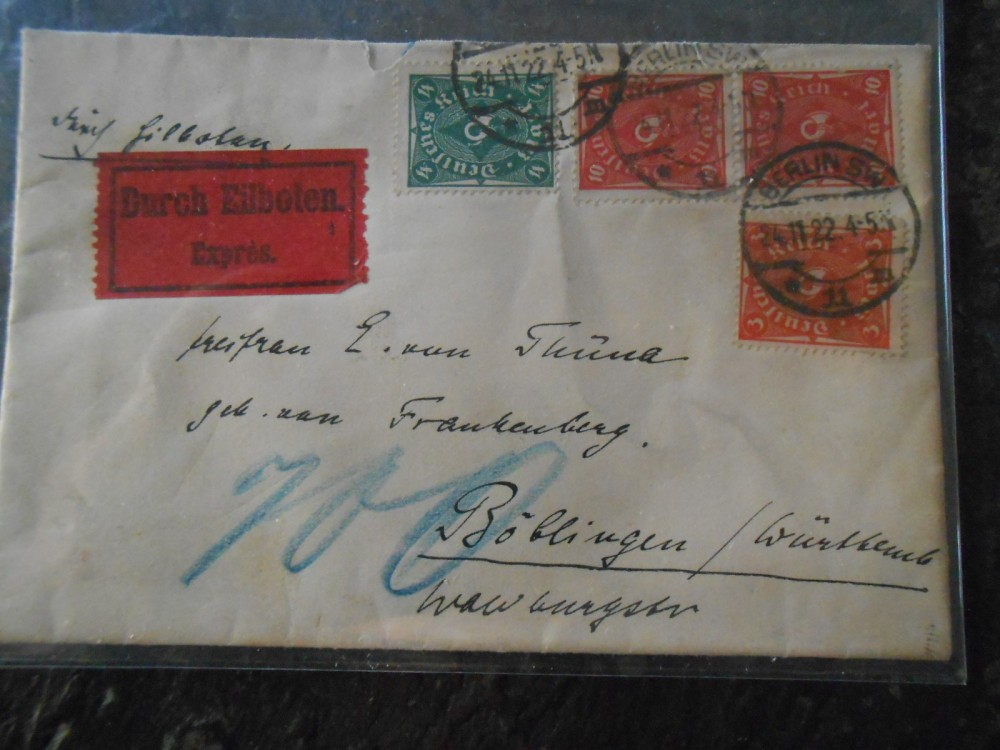 durch Eilboten.
Durch Eilboten.
Exprès.
4 Deutsches Reich 4
10 Deutsches Reich 10
10 Deutsches Reich 10
3 Deutsches Reich 3
24.11.22.4-5N
* 11 B
BERLIN SW
BERLIN SW
24.11.22.4-5N
* 11 B
freifrau E. von Thüna
geb. von Frankenberg.
Böblingen / Württemb